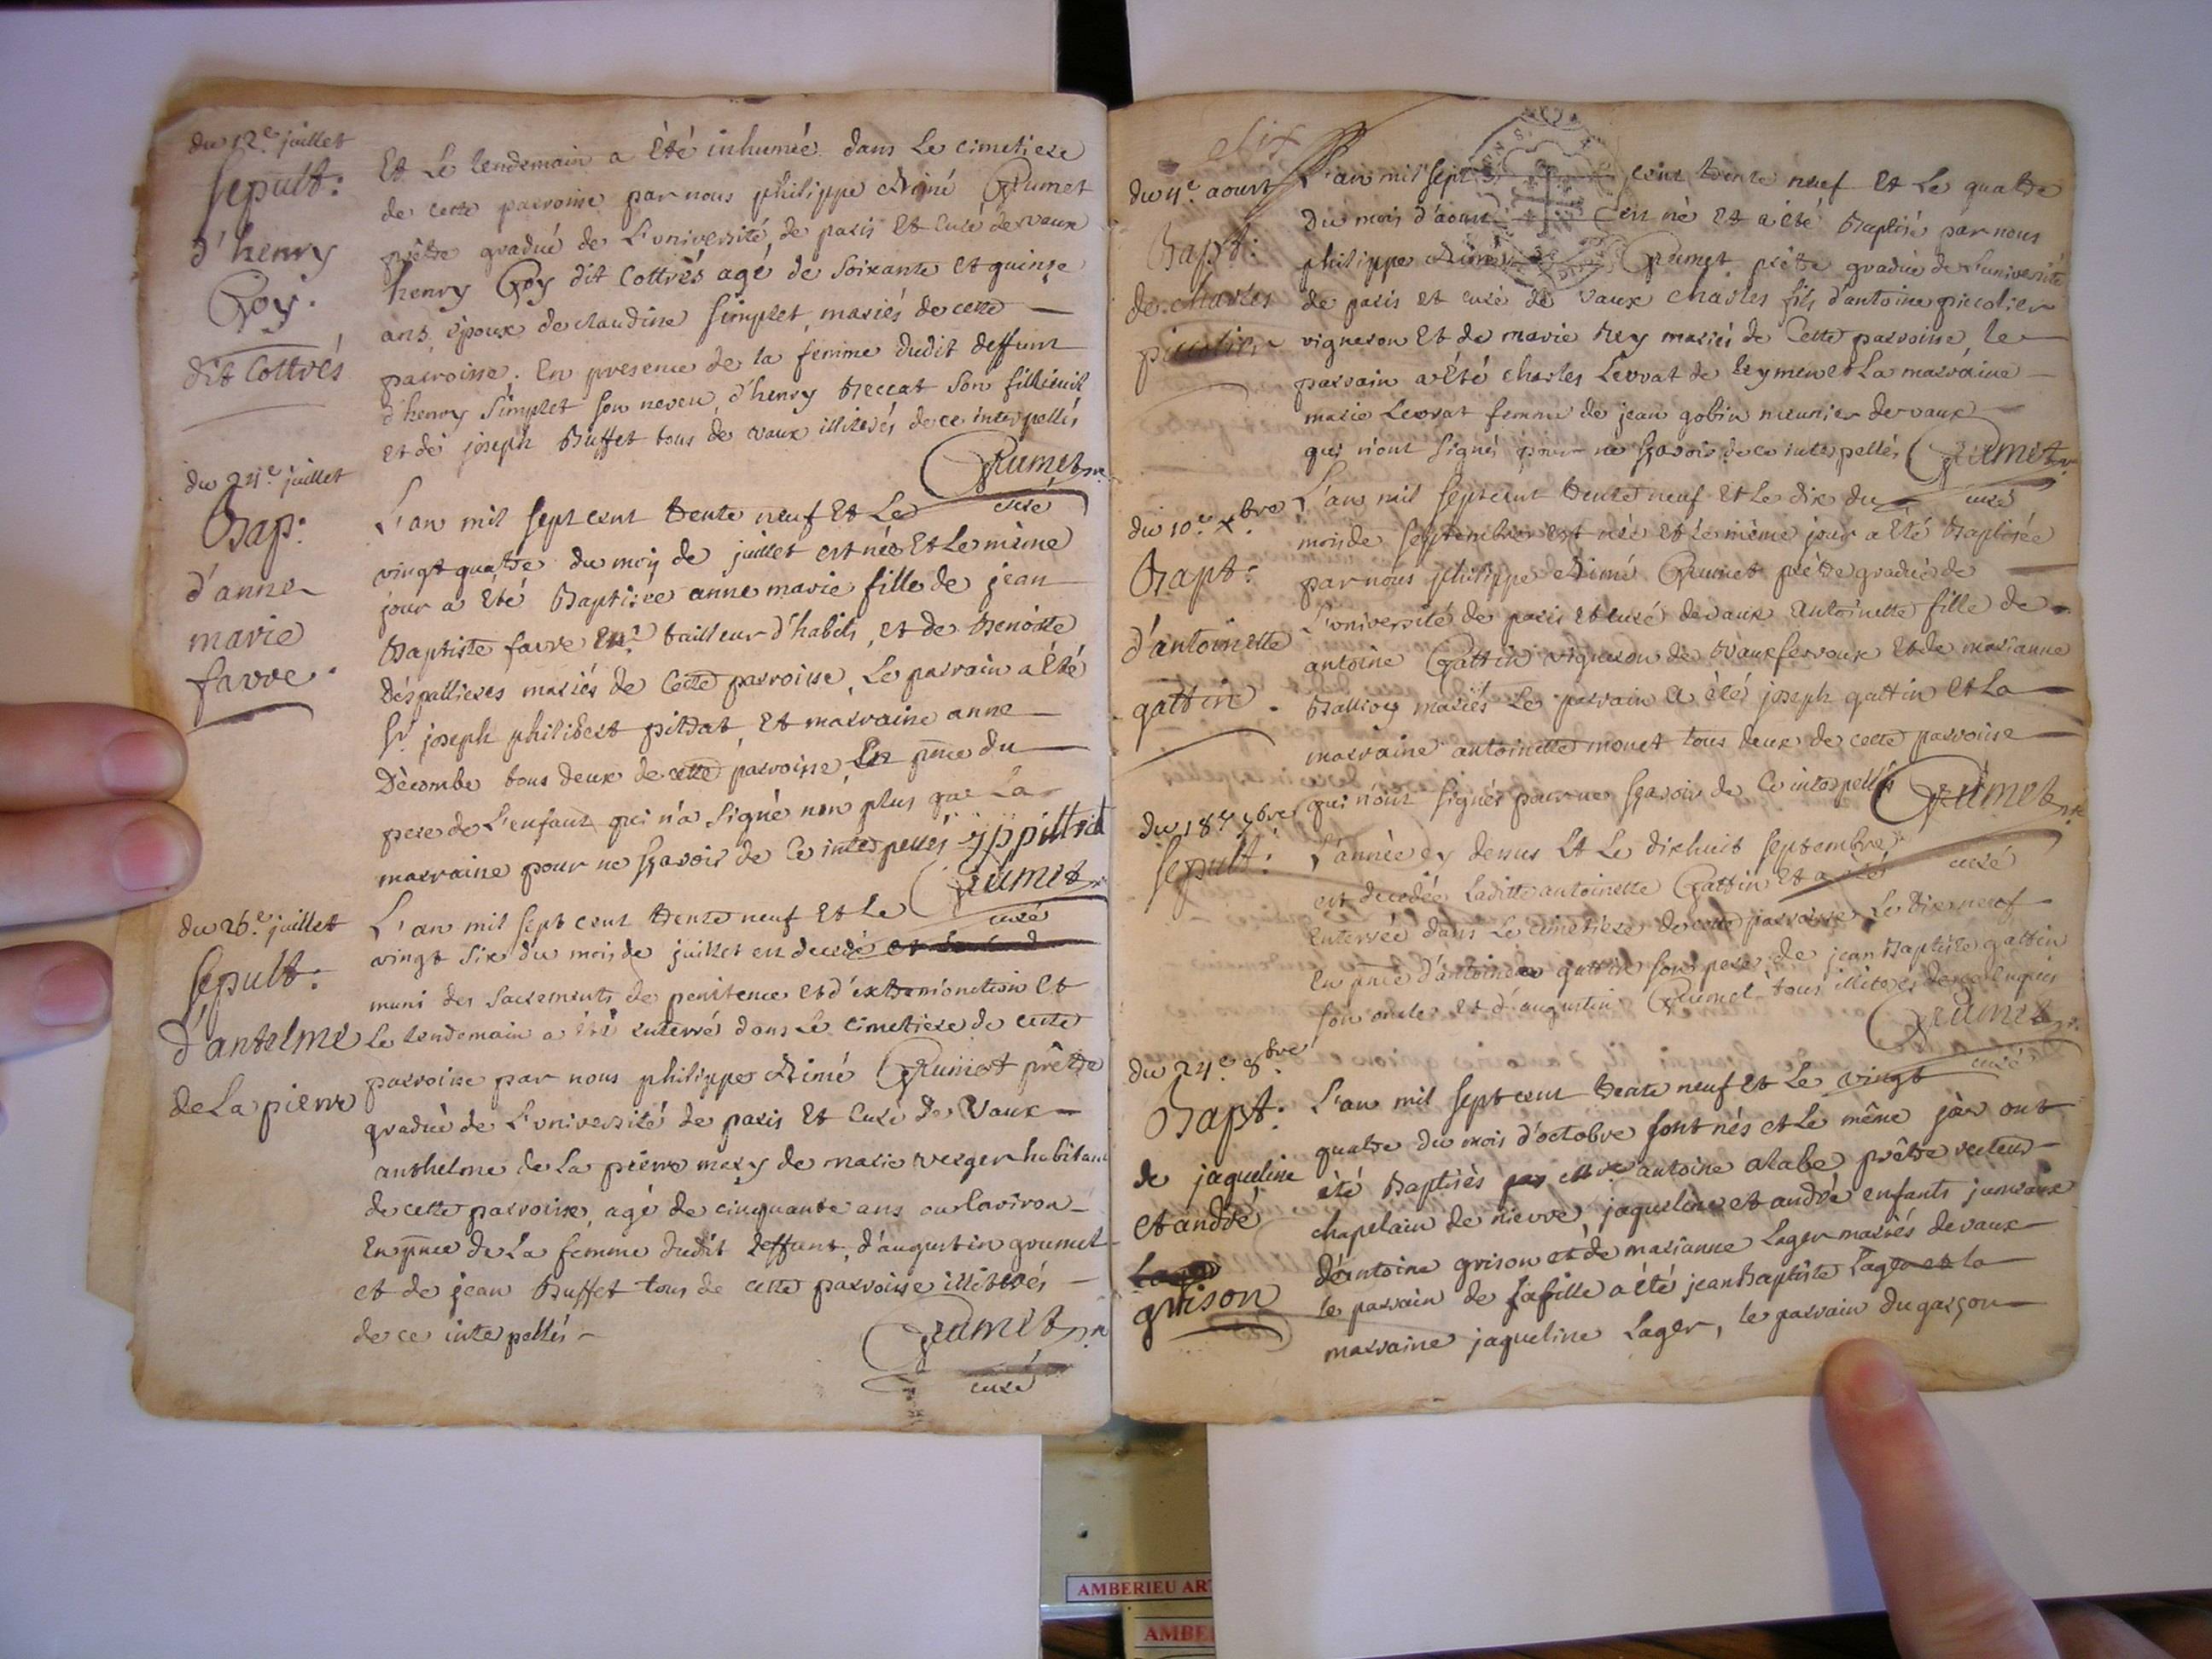 du 12e juillet
sepult:
d'henry
Goy.
dit Cottrés
Et Le lendemain a été inhumée dans Le cimetiere
de cette parroisse par nous philippe Aimé Grumet
prêtre gradué de L'université de paris Et Curé de vaux
henry Goy dit Cottrés agé de soixante et quinze
ans, époux de claudine simplet, mariés de cette
parroisse. En presence de la femme dudit deffunt
d'henry simplet son neveu, d'henry Beccat son
et de joseph Buffet tous de vaux illiterés de ce interpellés
Grumet
curé
du 24e juillet
Bap:
d'anne
marie
favre.
L'an mil sept cent trente neuf Et Le
vingt quatre du moy de juillet est née Et Le même
jour a été Baptisée anne marie fille de jean
Baptiste favre tailleur d'habits, et de Benoitte
Déspallieres mariés de Cette parroisse, Le parrain a été
Sr joseph philibert pittrat, Et marraine anne
Décombe tous deux de cette parroisse, En pnce du
pere de L'enfant qui n'a signé non plus que La
marraine pour ne sçavoir de Ce interpellés jppittrat
Grumet
curé
du 26e juillet
sepult:
d'antelme
de La pierre
L'an mil sept cent trente neuf Et Le
vingt six du mois de juillet est decedé
muni des sacrements de penitence et d'extremonction Et
Le lendemain a été enterré dans Le cimetiere de cette
parroisse par nous philippe Aimé Grumet prêtre
gradué de L'université de paris Et Curé de Vaux
anthelme de La pierre mary de marie verger habitant
de cette parroisse, agé de cinquante ans ou Environ
En pnce de La femme dudit deffunt, d'augustin grumet
et de jean Buffet tous de cette parroisse illiterés
de ce interpellés
Grumet
curé
du 4e aoust
Bapt:
de charles
piccolier
L'an mil sept cent trente neuf Et Le quatre
du mois d'aoust est né Et a été Baptisé par nous
philippe Aimé Grumet prêtre gradué de L'université
de paris et curé de Vaux charles fils d'antoine piccolier
vigneron Et de marie Rey mariés de Cette parroisse, le
parrain a été charles Levrat de Leymen et La marraine
marie Levrat femme de jean gobin meunier de vaux
qui n'ont signés pour ne sçavoir de ce interpellés Grumet
curé
du 10e xbre
Bapt:
d'antoinette
gattin.
L'an mil sept cent trente neuf Et Le dix du
mois de septembre est née et Le même jour a été Baptisée
par nous philippe Aimé Grumet prêtre gradué de
L'université de paris et curé de vaux antoinette fille de
antoine Gattin vigneron de vaux fevroux Et de marianne
Balliou mariés Le parrain a été joseph gattin Et La
marraine antoinette monet tous deux de cette parroisse
qui n'ont signés pour ne sçavoir de Ce interpellés Grumet
curé
du 18e 7bre
sepult:
L'année cy dessus Et Le dixhuit septembre
est decedée Laditte antoinette Gattin Et a été
Enterrée dans Le cimetiere de cette parroisse Le dixneuf
En pnce d'antoine gattin son pere, de jean Baptiste gattin
son oncle, et d'augustin Grumet tous illiterés de ce Enquis
Grumet
curé
du 24e 8bre
Bapt:
de jaqueline
et andré
grison
L'an mil sept cent trente neuf Et Le vingt
quatre du mois d'octobre sont nés et Le même jôr ont
été Baptisés par Mre antoine alabe prêtre recteur
chapelain de nievre, jaqueline et andré enfants jumeaux
d'antoine grison et de marianne Lager mariés de vaux
le parrain de La fille a été jean Baptiste Lager et la
marraine jaqueline Lager, le parrain du garçon
AMBERIEU AR
AMBE